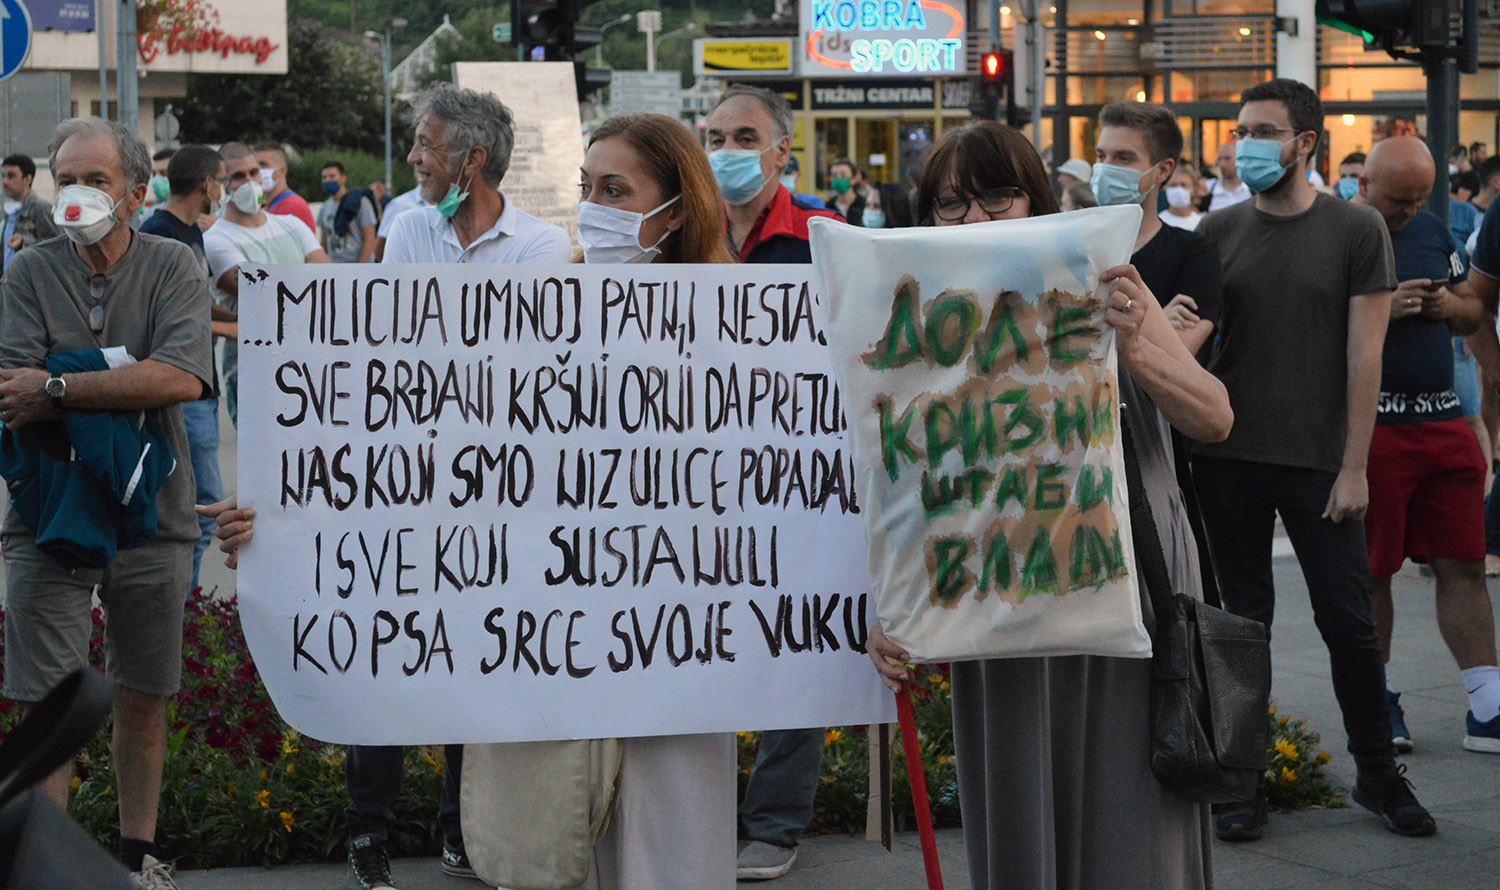 KOBRA
kids
SPORT
TRŽNI CENTAR
...MILICIJA UMNOJ PATNJI NESTA
SVE BRĐANI KRŠNI ORNI DA PRETU
NAS KOJI SMO NIZ ULICE POPADAL
I SVE KOJI SUSTANULI
KO PSA SRCE SVOJE VUKU
ДОЛЕ
КРИЗНИ
ШТАБ И
ВЛАДА